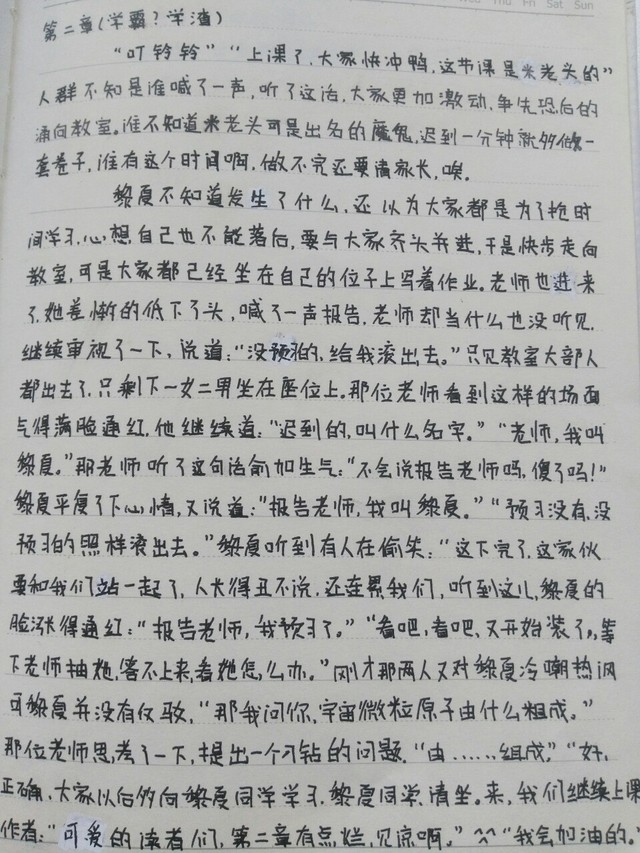 Thu Fri Sat Sun
第二章(学霸？学渣)
“叮铃铃”“上课了，大家快冲鸭，这节课是米老头的”
人群不知是谁喊了一声，听了这话，大家更加激动，争先恐后的
涌向教室。谁不知道米老头可是出名的魔鬼，迟到一分钟就够做一
套卷子，谁有这个时间啊，做不完还要请家长，唉。
黎夏不知道发生了什么，还以为大家都是为了抢时
间学习，心想自己也不能落后，要与大家齐头并进，于是快步走向
教室，可是大家都已经坐在自己的位子上写着作业。老师也进来
了，她羞惭的低下了头，喊了一声报告，老师却当什么也没听见，
继续审视了一下，说道：“没预习的，给我滚出去。”只见教室大部人
都出去了，只剩下一女二男坐在座位上。那位老师看到这样的场面
气得满脸通红，他继续道：“迟到的，叫什么名字。”“老师，我叫
黎夏。”那老师听了这句话愈加生气：“不会说报告老师吗，傻了吗！”
黎夏平复了下心情，又说道：“报告老师，我叫黎夏。”“预习没有，没
预习的照样滚出去。”黎夏听到有人在偷笑：“这下完了，这家伙
要和我们站一起了，人长得丑不说，还连累我们，听到这儿，黎夏的
脸涨得通红：“报告老师，我预习了。”“看吧，看吧，又开始装了，等
下老师抽她，答不上来，看她怎么办。”刚才那两人又对黎夏冷嘲热讽
可黎夏并没有反驳，“那我问你，宇宙微粒原子由什么组成。”
那位老师思考了一下，提出一个刁钻的问题，“由……组成”“好，
正确，大家以后多向黎夏同学学习，黎夏同学，请坐。来，我们继续上课
作者：“可爱的读者们，第二章有点烂，见谅啊。”^^“我会加油的。”